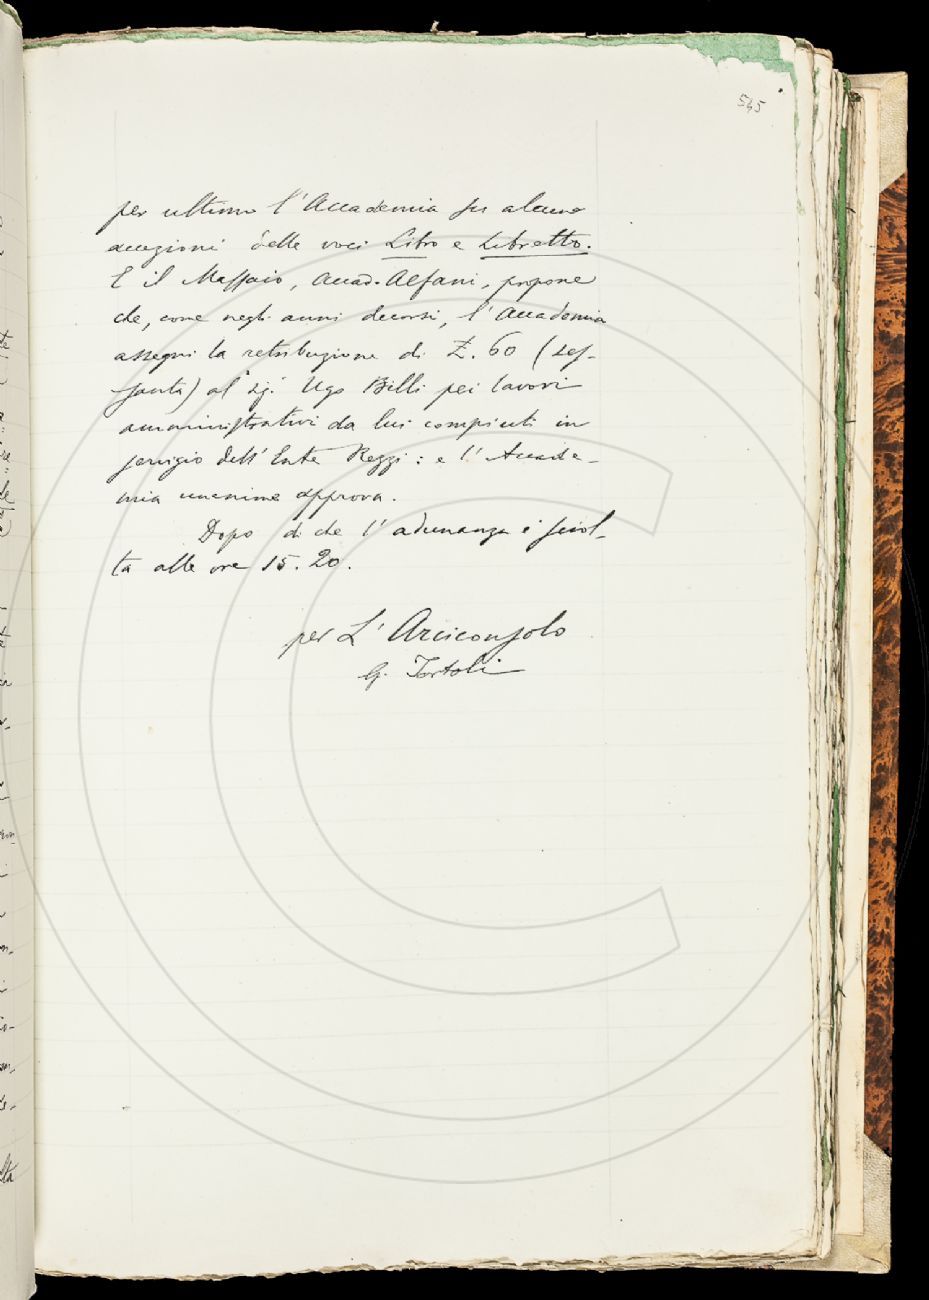 545
per ultimo l'Accademia su alcune
accezioni delle voci Libro e Libretto.
E il Massaio, Accad. Alfani, propone
che, come negli anni decorsi, l'Accademia
assegni la retribuzione di L. 60 (ses-
santa) al sig. Ugo Billi pei lavori
amministrativi da lui compiuti in
servigio dell'Ente Rezzi: e l'Accade-
mia unanime approva.
Dopo di che l'adunanza è sciol-
ta alle ore 15.20.
per L'Arciconsolo
G. Tortoli